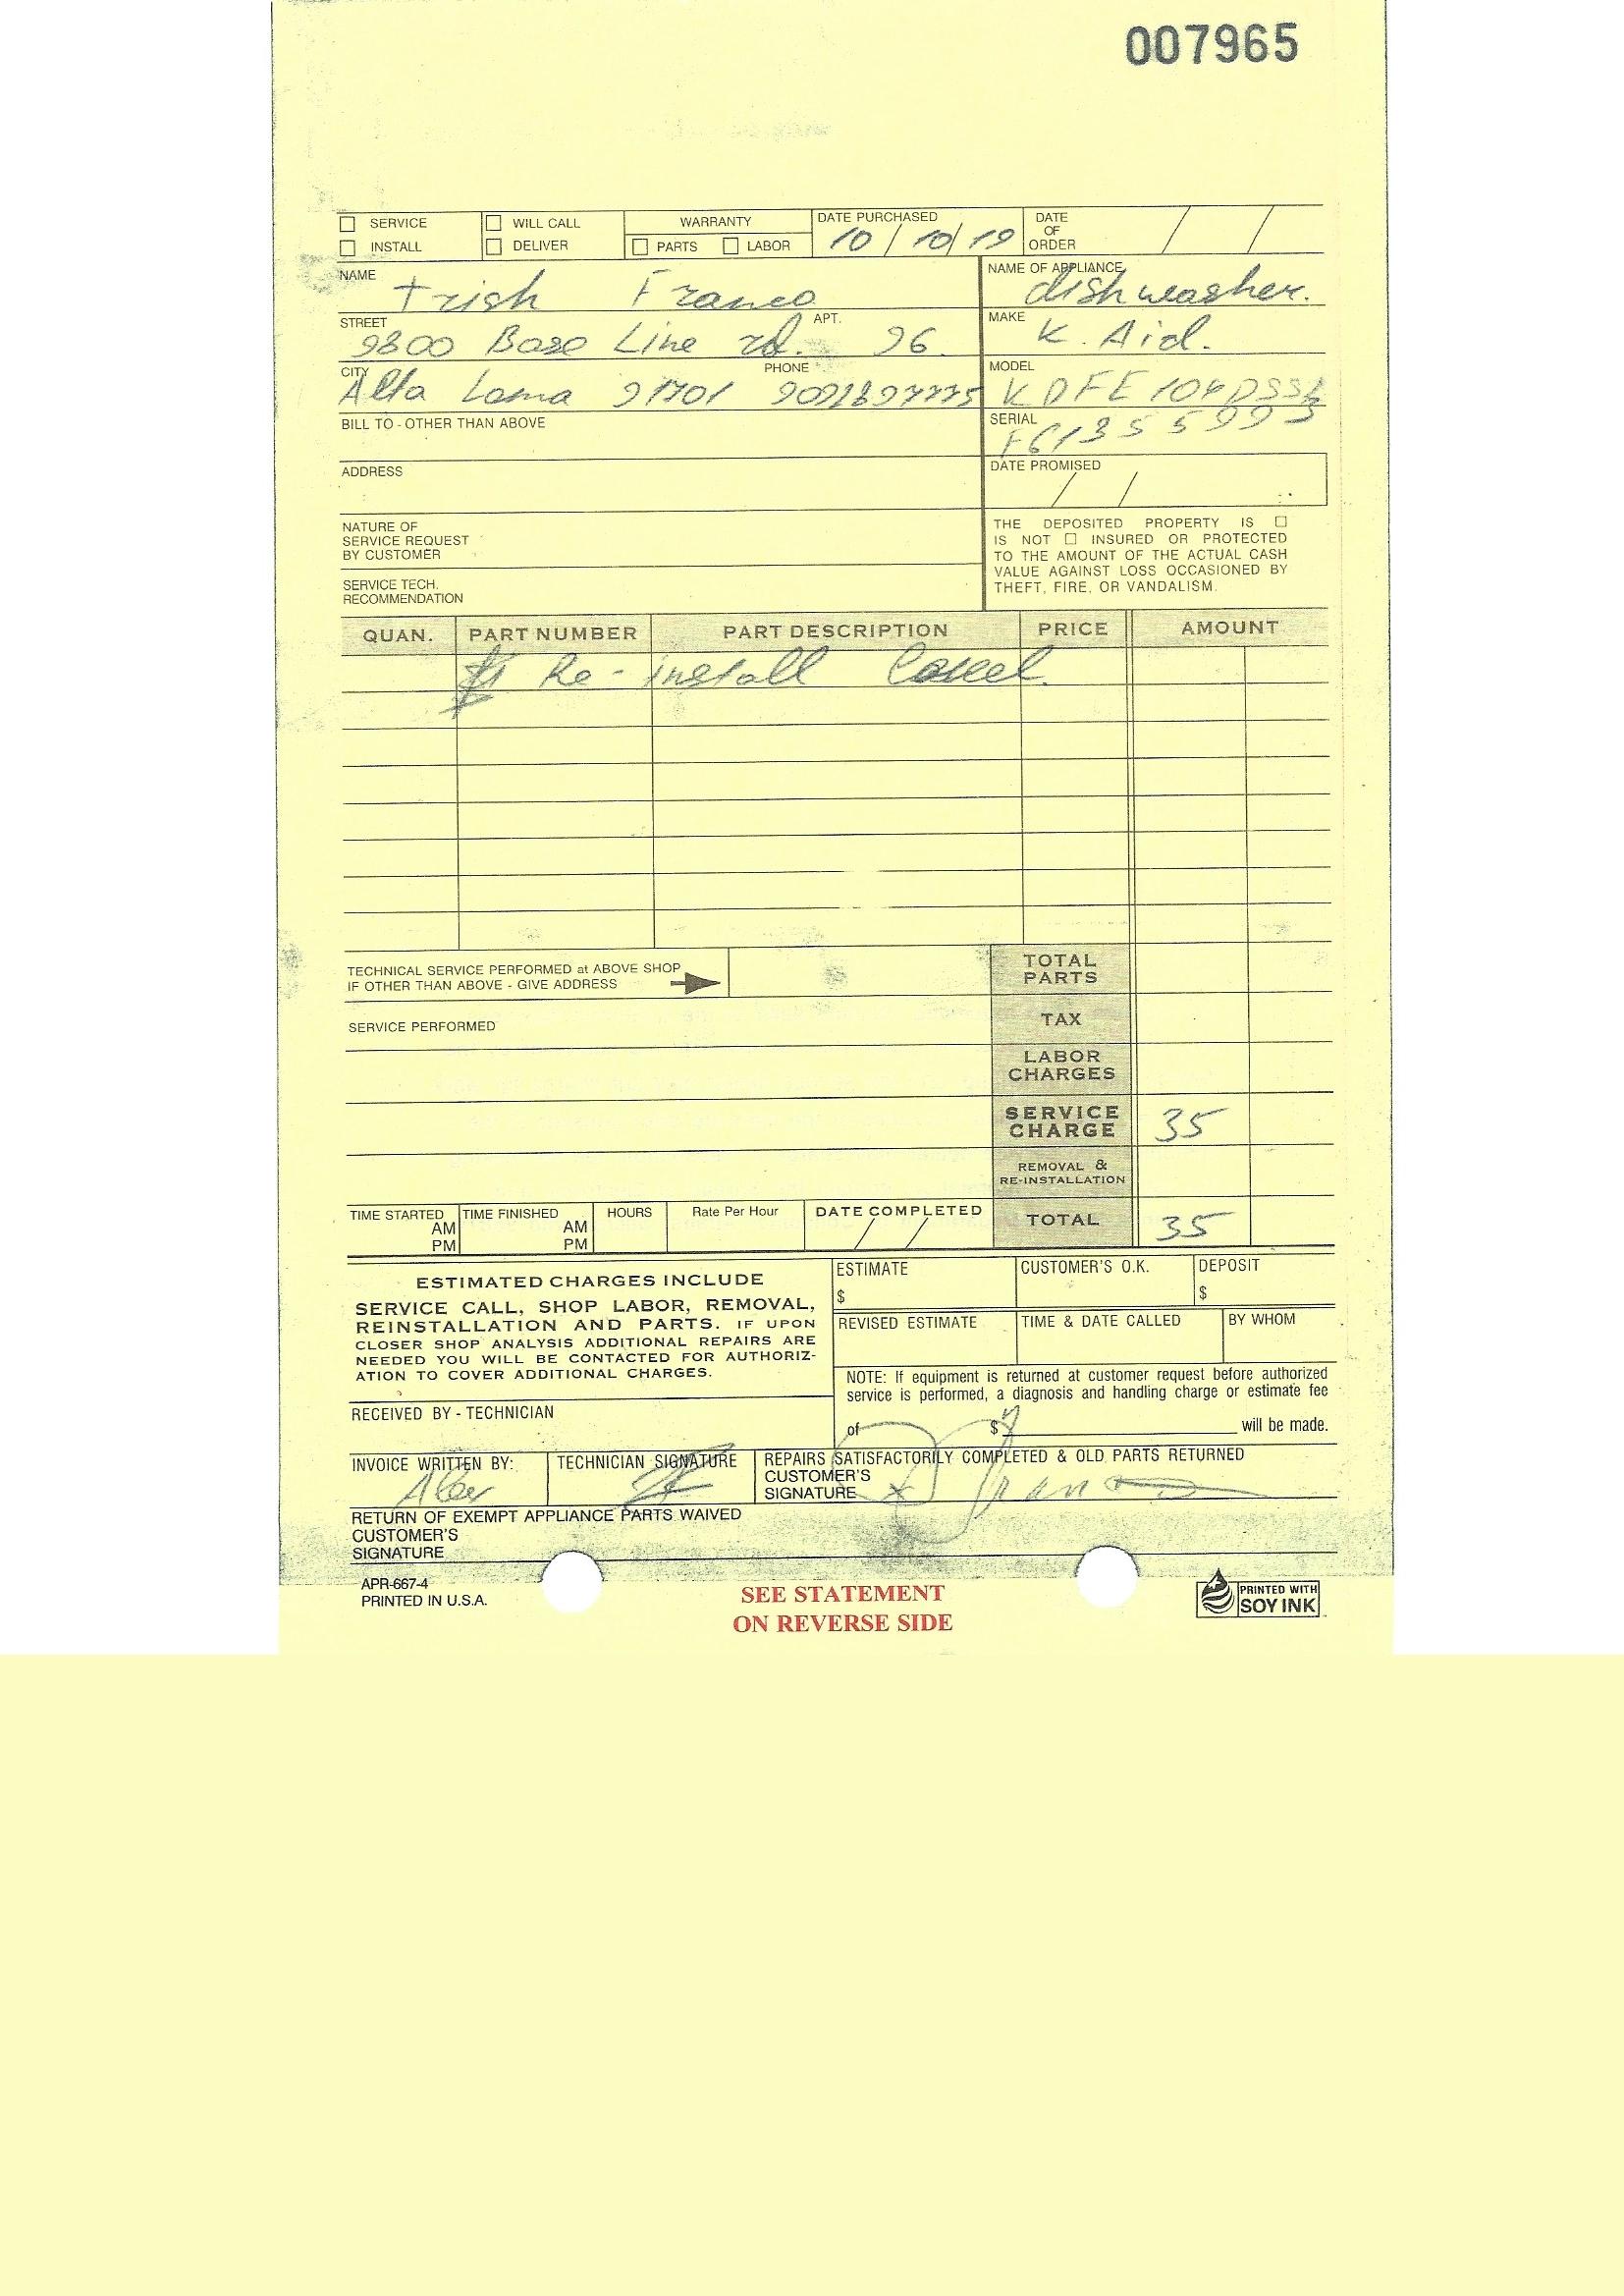 007965
SERVICE WILL CALL WARRANTY DATE PURCHASED DATE OF ORDER
INSTALL DELIVER PARTS LABOR 10/10/19 / /
NAME Trish Franco NAME OF APPLIANCE dishwasher.
STREET 9800 Base Line rd. APT. 96. MAKE K. Aid.
CITY Alta Loma 91701 PHONE MODEL KDFE104
BILL TO - OTHER THAN ABOVE SERIAL
ADDRESS DATE PROMISED / /
NATURE OF
SERVICE REQUEST
BY CUSTOMER
SERVICE TECH.
RECOMMENDATION
THE DEPOSITED PROPERTY IS ☐
IS NOT ☐ INSURED OR PROTECTED
TO THE AMOUNT OF THE ACTUAL CASH
VALUE AGAINST LOSS OCCASIONED BY
THEFT, FIRE, OR VANDALISM.
QUAN. PART NUMBER PART DESCRIPTION PRICE AMOUNT
Re-install
TECHNICAL SERVICE PERFORMED at ABOVE SHOP
IF OTHER THAN ABOVE - GIVE ADDRESS
TOTAL PARTS
SERVICE PERFORMED
TAX
LABOR CHARGES
SERVICE CHARGE 35
REMOVAL & RE-INSTALLATION
TIME STARTED AM PM TIME FINISHED AM PM HOURS Rate Per Hour DATE COMPLETED / / TOTAL 35
ESTIMATED CHARGES INCLUDE
SERVICE CALL, SHOP LABOR, REMOVAL,
REINSTALLATION AND PARTS. IF UPON
CLOSER SHOP ANALYSIS ADDITIONAL REPAIRS ARE
NEEDED YOU WILL BE CONTACTED FOR AUTHORIZ-
ATION TO COVER ADDITIONAL CHARGES.
ESTIMATE $ CUSTOMER'S O.K. DEPOSIT $
REVISED ESTIMATE TIME & DATE CALLED BY WHOM
NOTE: If equipment is returned at customer request before authorized
service is performed, a diagnosis and handling charge or estimate fee
of $ will be made.
RECEIVED BY - TECHNICIAN
INVOICE WRITTEN BY: Alex TECHNICIAN SIGNATURE REPAIRS SATISFACTORILY COMPLETED & OLD PARTS RETURNED
CUSTOMER'S
SIGNATURE
RETURN OF EXEMPT APPLIANCE PARTS WAIVED
CUSTOMER'S
SIGNATURE
APR-667-4
PRINTED IN U.S.A.
SEE STATEMENT
ON REVERSE SIDE
PRINTED WITH
SOY INK